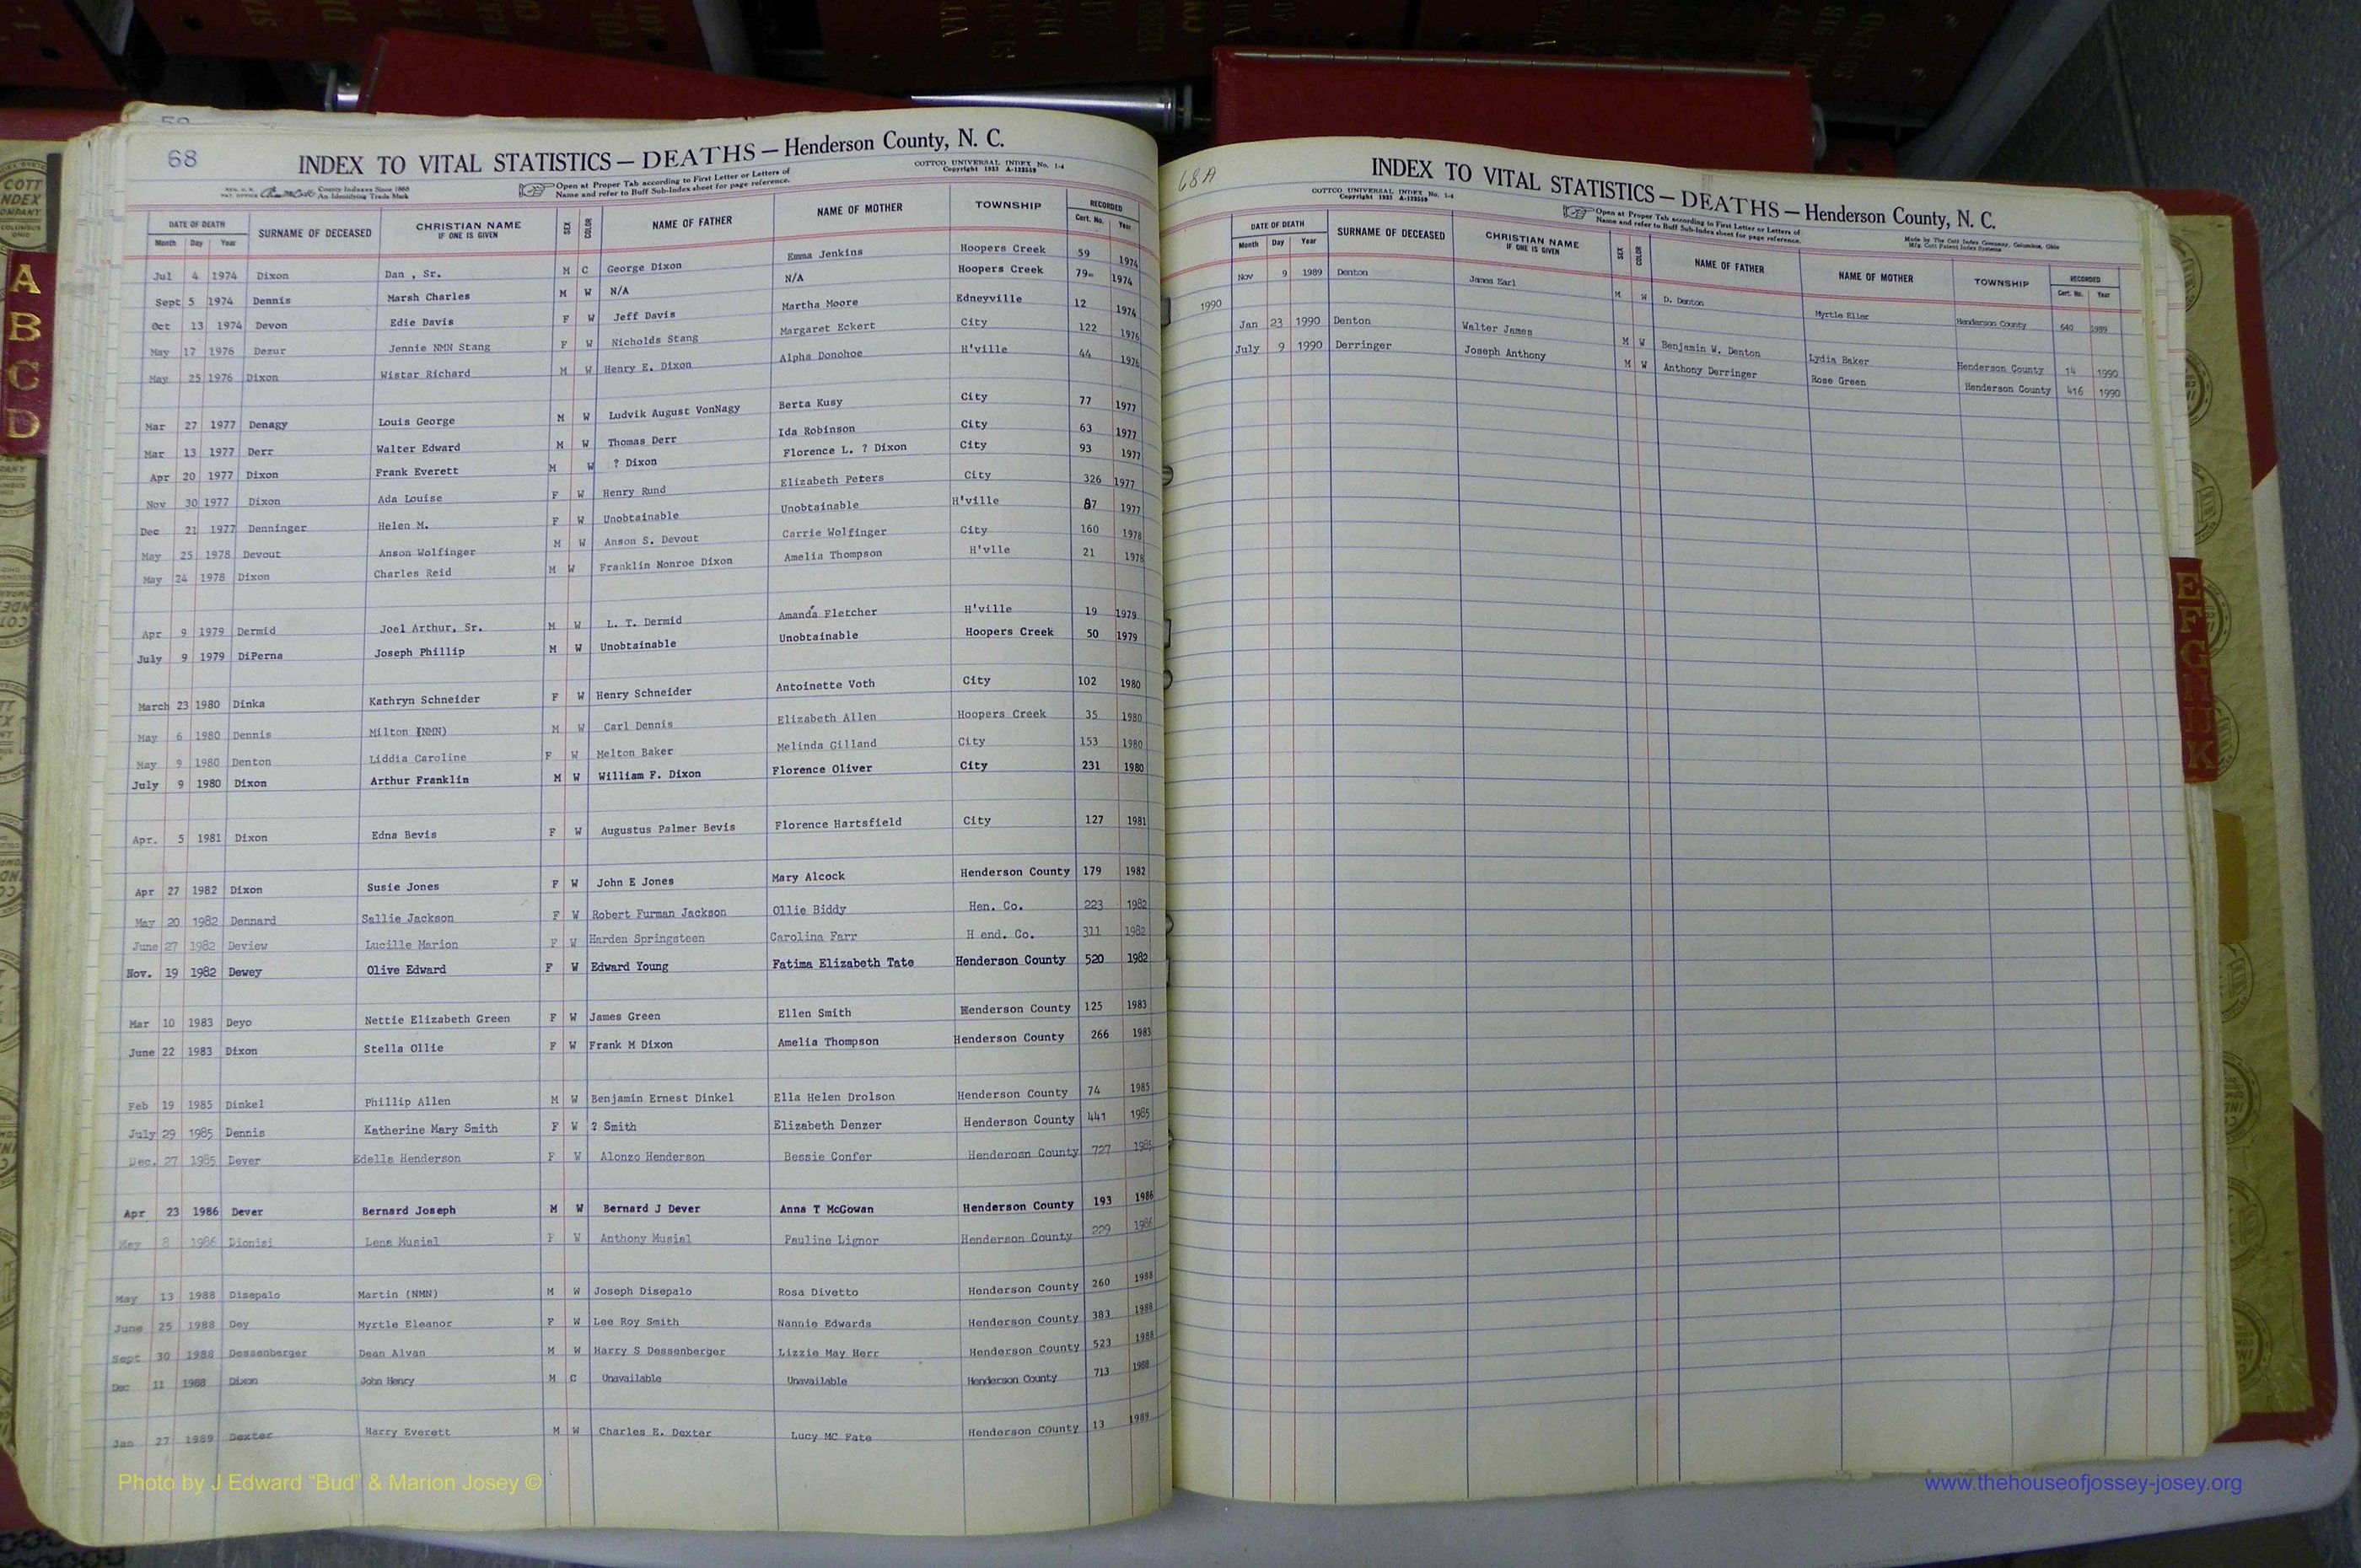 68
INDEX TO VITAL STATISTICS — DEATHS — Henderson County, N. C.
COTTCO UNIVERSAL INDEX No. 1-4
Copyright 1933 A-122519
County Indexes Since 1888
An Identifying Trade Mark
Open at Proper Tab according to First Letter or Letters of
Name and refer to Buff Sub-Index sheet for page reference.
DATE OF DEATH SURNAME OF DECEASED CHRISTIAN NAME IF ONE IS GIVEN SEX COLOR NAME OF FATHER NAME OF MOTHER TOWNSHIP RECORDED
Month Day Year Cert. No. Year
Jul 4 1974 Dixon Dan , Sr. M C George Dixon Emma Jenkins Hoopers Creek 59 1974
Sept 5 1974 Dennis Marsh Charles M W N/A N/A Hoopers Creek 79= 1974
Oct 13 1974 Devon Edie Davis F W Jeff Davis Martha Moore Edneyville 12 1974
May 17 1976 Dezur Jennie NMN Stang F W Nicholds Stang Margaret Eckert City 122 1976
May 25 1976 Dixon Wistar Richard M W Henry E. Dixon Alpha Donohoe H'ville 44 1976
Mar 27 1977 Denagy Louis George M W Ludvik August VonNagy Berta Kusy City 77 1977
Mar 13 1977 Derr Walter Edward M W Thomas Derr Ida Robinson City 63 1977
Apr 20 1977 Dixon Frank Everett M W ? Dixon Florence L. ? Dixon City 93 1977
Nov 30 1977 Dixon Ada Louise F W Henry Rund Elizabeth Peters City 326 1977
Dec 21 1977 Denninger Helen M. F W Unobtainable Unobtainable H'ville 87 1977
May 25 1978 Devout Anson Wolfinger M W Anson S. Devout Carrie Wolfinger City 160 1978
May 24 1978 Dixon Charles Reid M W Franklin Monroe Dixon Amelia Thompson H'vlle 21 1978
Apr 9 1979 Dermid Joel Arthur, Sr. M W L. T. Dermid Amanda Fletcher H'ville 19 1979
July 9 1979 DiPerna Joseph Phillip M W Unobtainable Unobtainable Hoopers Creek 50 1979
March 23 1980 Dinka Kathryn Schneider F W Henry Schneider Antoinette Voth City 102 1980
May 6 1980 Dennis Milton (NMN) M W Carl Dennis Elizabeth Allen Hoopers Creek 35 1980
May 9 1980 Denton Liddia Caroline F W Melton Baker Melinda Gilland City 153 1980
July 9 1980 Dixon Arthur Franklin M W William F. Dixon Florence Oliver City 231 1980
Apr. 5 1981 Dixon Edna Bevis F W Augustus Palmer Bevis Florence Hartsfield City 127 1981
Apr 27 1982 Dixon Susie Jones F W John E Jones Mary Alcock Henderson County 179 1982
May 20 1982 Dennard Sallie Jackson F W Robert Furman Jackson Ollie Biddy Hen. Co. 223 1982
June 27 1982 Deview Lucille Marion F W Harden Springsteen Carolina Farr H end. Co. 311 1982
Nov. 19 1982 Dewey Olive Edward F W Edward Young Fatima Elizabeth Tate Henderson County 520 1982
Mar 10 1983 Deyo Nettie Elizabeth Green F W James Green Ellen Smith Henderson County 125 1983
June 22 1983 Dixon Stella Ollie F W Frank M Dixon Amelia Thompson Henderson County 266 1983
Feb 19 1985 Dinkel Phillip Allen M W Benjamin Ernest Dinkel Ella Helen Drolson Henderson County 74 1985
July 29 1985 Dennis Katherine Mary Smith F W ? Smith Elizabeth Denzer Henderson County 441 1985
Dec. 27 1985 Dever Edella Henderson F W Alonzo Henderson Bessie Confer Henderosn County 727 1985
Apr 23 1986 Dever Bernard Joseph M W Bernard J Dever Anna T McGowan Henderson County 193 1986
May 8 1986 Dionisi Lena Musial F W Anthony Musial Pauline Lignor Henderson County 229 1986
May 13 1988 Disepalo Martin (NMN) M W Joseph Disepalo Rosa Divetto Henderson County 260 1988
June 25 1988 Dey Myrtle Eleanor F W Lee Roy Smith Nannie Edwards Henderson County 383 1988
Sept 30 1988 Dessenberger Dean Alvan M W Harry S Dessenberger Lizzie May Herr Henderson County 523 1988
Dec 11 1988 Dixon John Henry M C Unavailable Unavailable Henderson County 713 1988
Jan 27 1989 Dexter Harry Everett M W Charles E. Dexter Lucy MC Fate Henderson COunty 13 1989
68A
INDEX TO VITAL STATISTICS — DEATHS — Henderson County, N. C.
COTTCO UNIVERSAL INDEX No. 1-4
Copyright 1933 A-122519
Open at Proper Tab according to First Letter or Letters of
Name and refer to Buff Sub-Index sheet for page reference.
Made by The Cott Index Company, Columbus, Ohio
Mfg. Cott Patent Index Systems
DATE OF DEATH SURNAME OF DECEASED CHRISTIAN NAME IF ONE IS GIVEN SEX COLOR NAME OF FATHER NAME OF MOTHER TOWNSHIP RECORDED
Month Day Year Cert. No. Year
Nov 9 1989 Denton James Earl M W D. Denton Myrtle Eller Henderson County 640 1989
1990
Jan 23 1990 Denton Walter James M W Benjamin W. Denton Lydia Baker Henderson County 14 1990
July 9 1990 Derringer Joseph Anthony M W Anthony Derringer Rose Green Henderson County 416 1990
A
B
C
D
E
F
G
H
IJ
K
Photo by J Edward “Bud” & Marion Josey ©
www.thehouseofjossey-josey.org